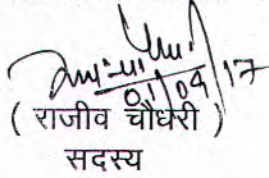 01/09/17
( राजीव चौधरी )
सदस्य